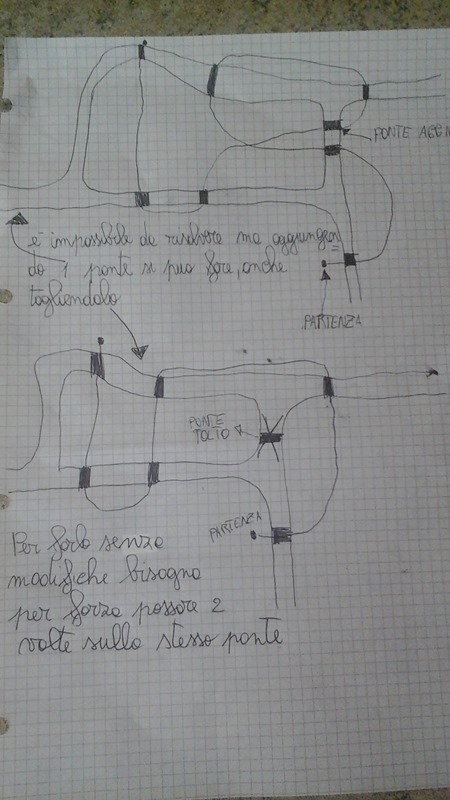 PONTE AGGI
è impossibile da risolvere ma aggiungen=
do 1 ponte si può fare, anche
togliendolo
PARTENZA
PONTE
TOLTO
PARTENZA
Per farlo senza
modifiche bisogna
per forza passare 2
volte sullo stesso ponte